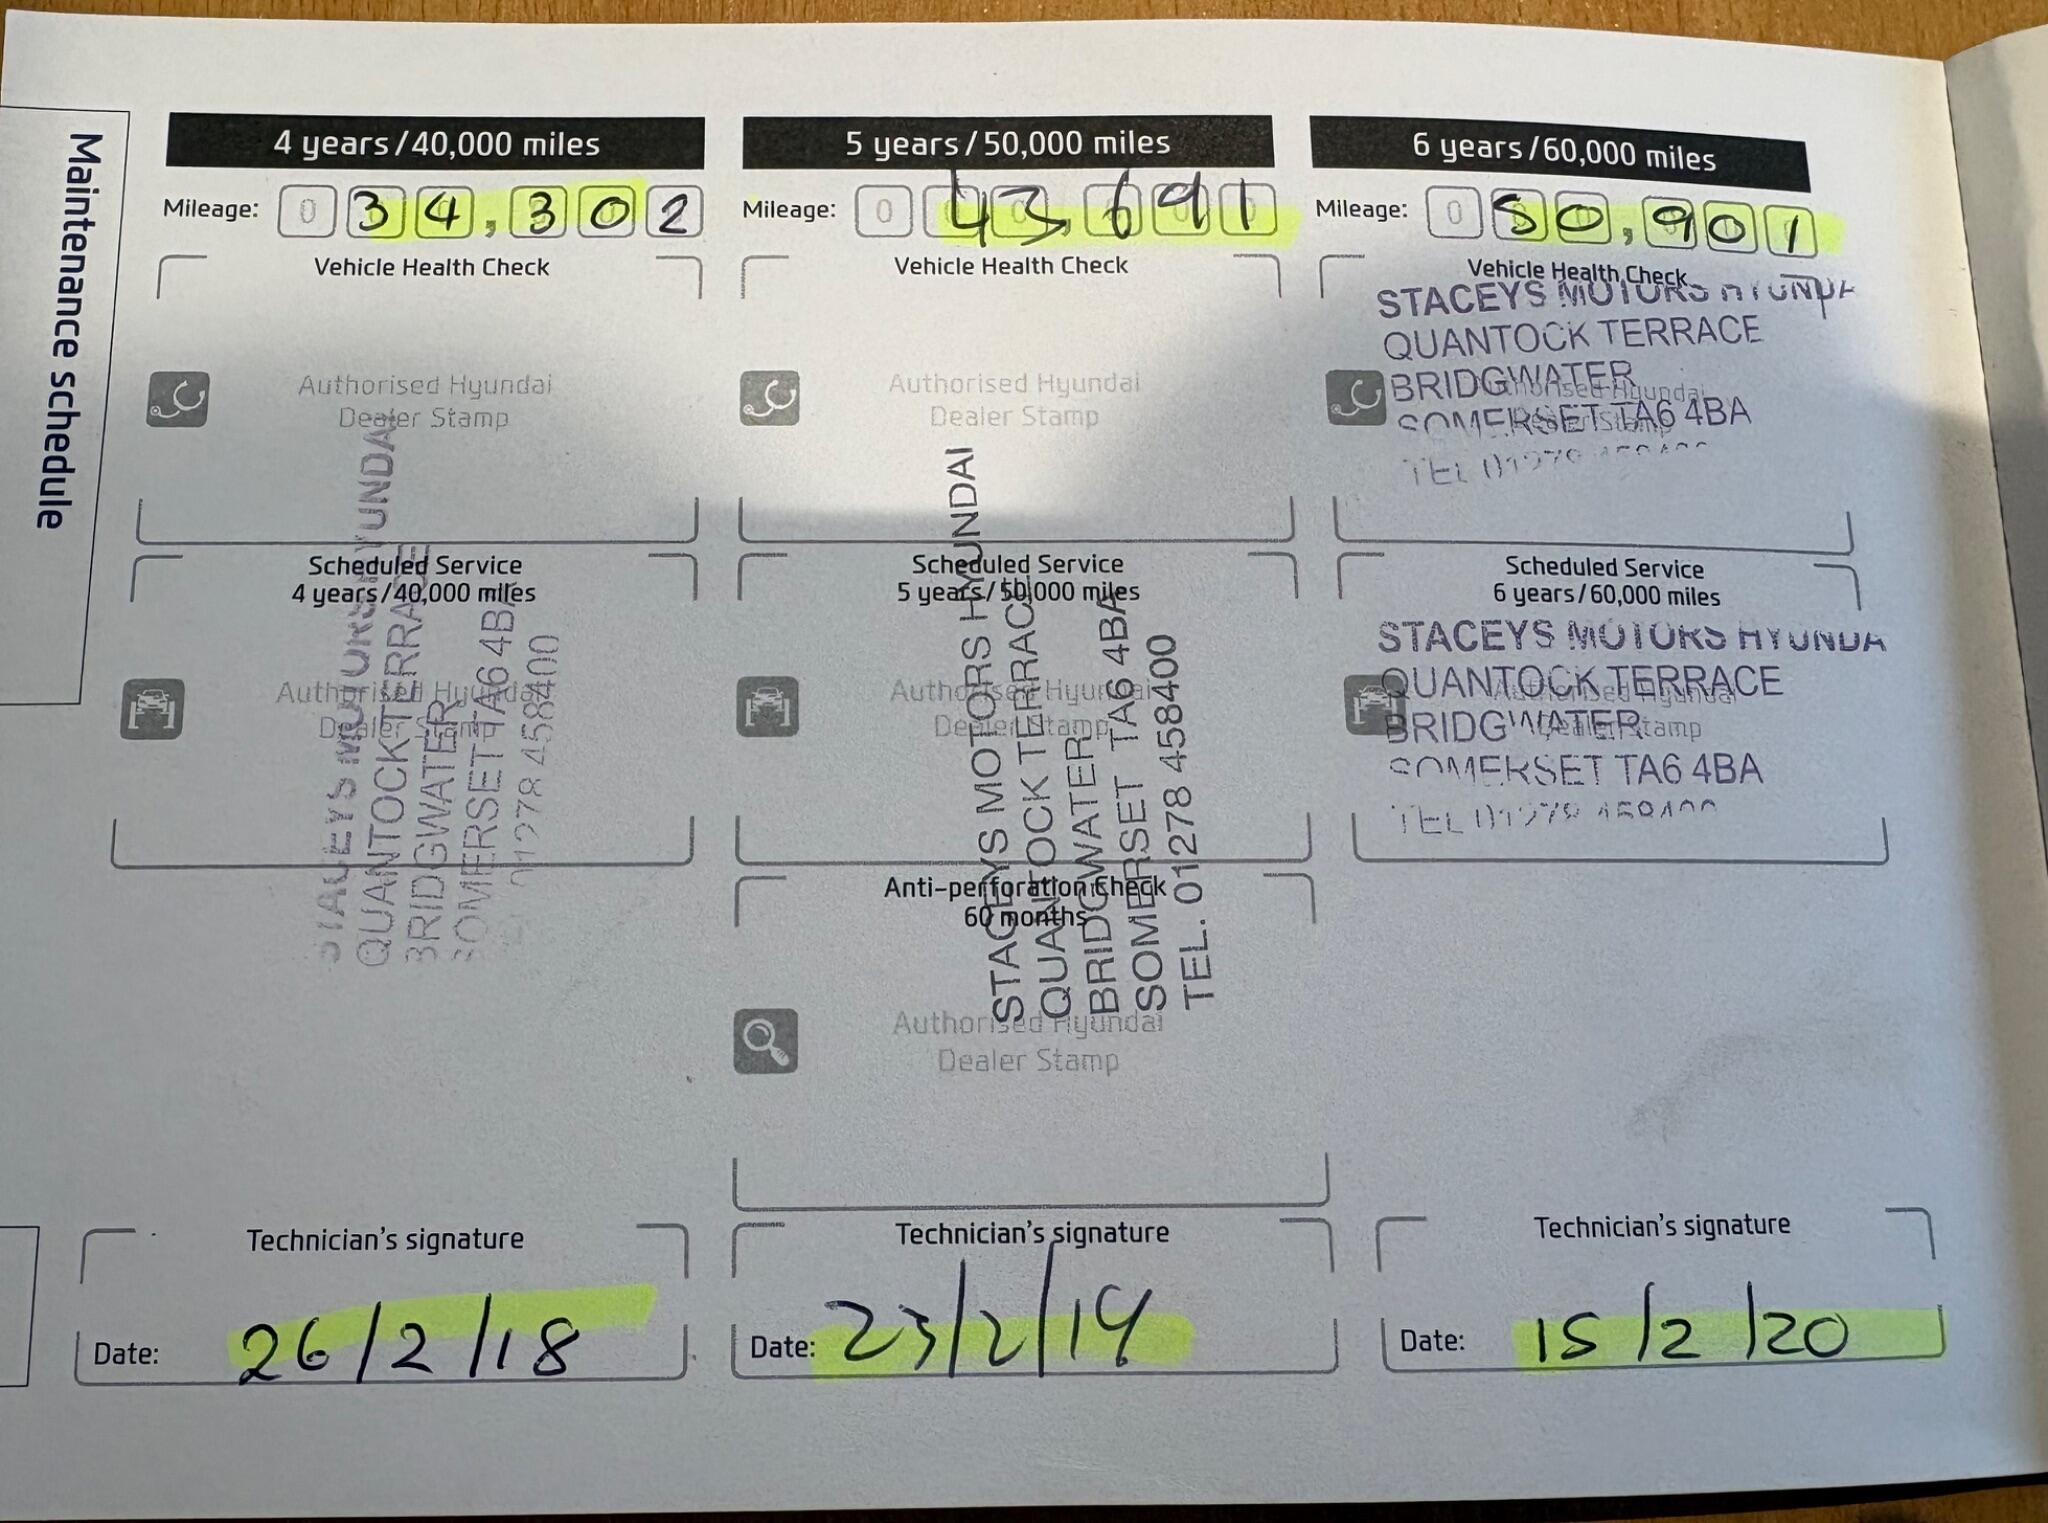 Maintenance schedule
4 years/40,000 miles
Mileage: 0 34,302
Vehicle Health Check
Authorised Hyundai
Dealer Stamp
Scheduled Service
4 years/40,000 miles
Authorised Hyundai
Dealer Stamp
STACEYS MOTORS HYUNDAI
QUANTOCK TERRACE
BRIDGWATER
SOMERSET TA6 4BA
01278 458400
Technician's signature
Date: 26/2/18
5 years/50,000 miles
Mileage: 0 43,691
Vehicle Health Check
Authorised Hyundai
Dealer Stamp
Scheduled Service
5 years/50,000 miles
Authorised Hyundai
Dealer Stamp
STACEYS MOTORS HYUNDAI
QUANTOCK TERRACE
BRIDGWATER
SOMERSET TA6 4BA
TEL. 01278 458400
Anti-perforation Check
60 months
Authorised Hyundai
Dealer Stamp
Technician's signature
Date: 23/2/19
6 years/60,000 miles
Mileage: 0 50,901
Vehicle Health Check
Authorised Hyundai
Dealer Stamp
STACEYS MOTORS HYUNDA
QUANTOCK TERRACE
BRIDGWATER
SOMERSET TA6 4BA
TEL
Scheduled Service
6 years/60,000 miles
Authorised Hyundai
Dealer Stamp
STACEYS MOTORS HYUNDA
QUANTOCK TERRACE
BRIDGWATER
SOMERSET TA6 4BA
TEL
Technician's signature
Date: 15/2/20